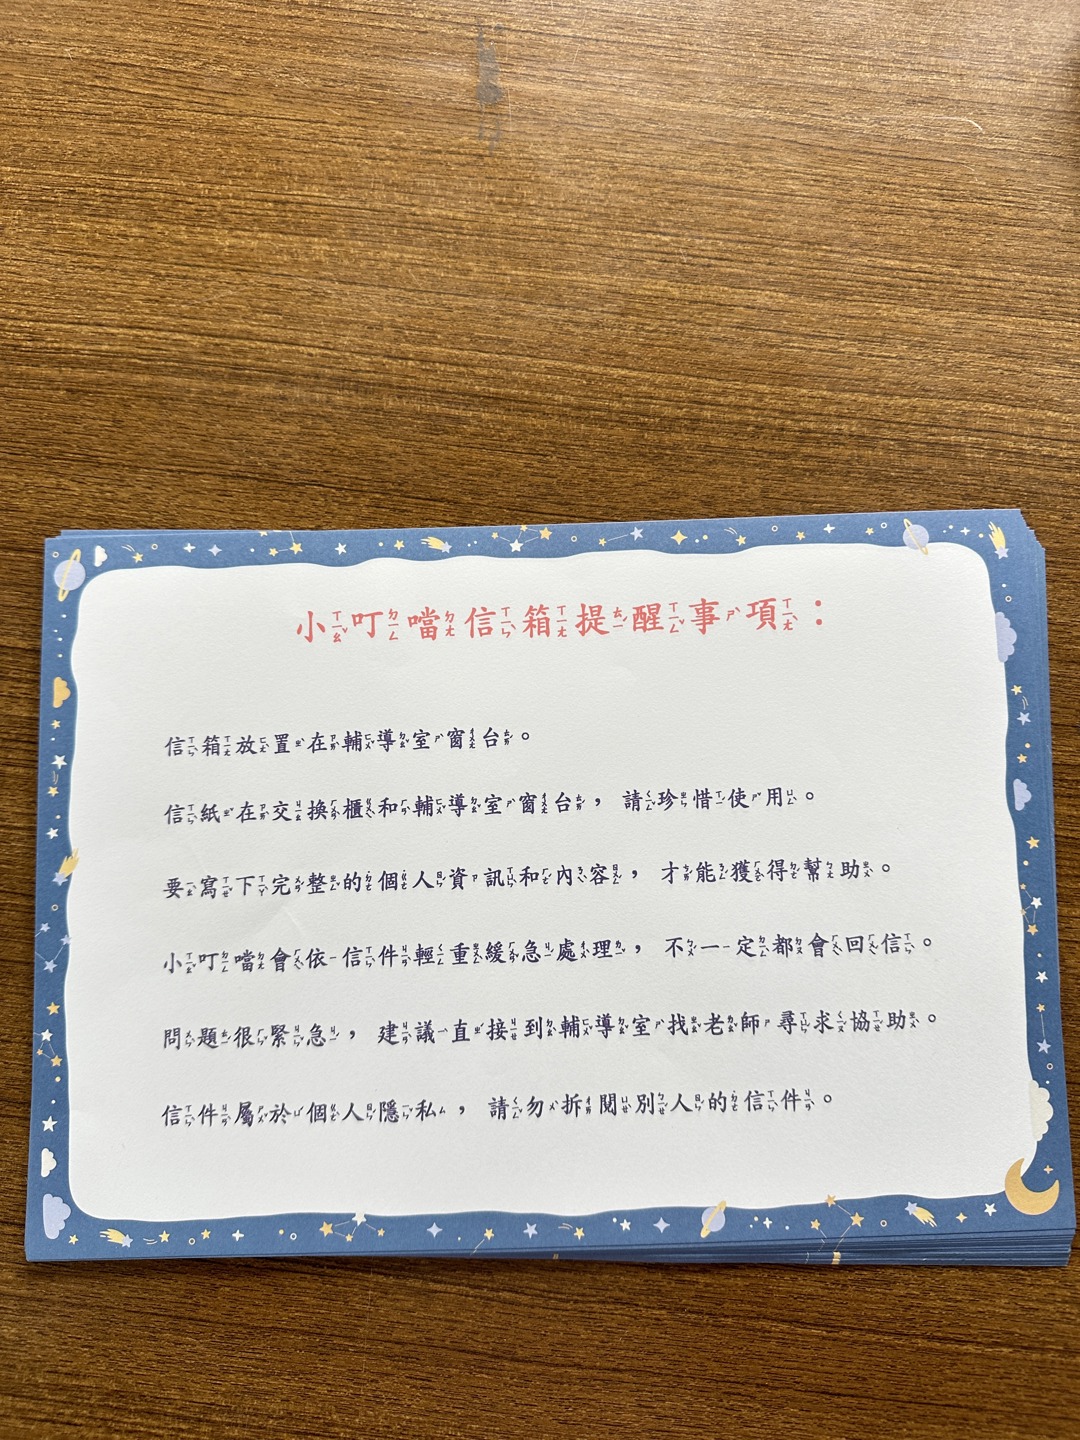 小叮噹信箱提醒事項：
信箱放置在輔導室窗台。
信紙在交換櫃和輔導室窗台，請珍惜使用。
要寫下完整的個人資訊和內容，才能獲得幫助。
小叮噹會依信件輕重緩急處理，不一定都會回信。
問題很緊急，建議直接到輔導室找老師尋求協助。
信件屬於個人隱私，請勿拆閱別人的信件。